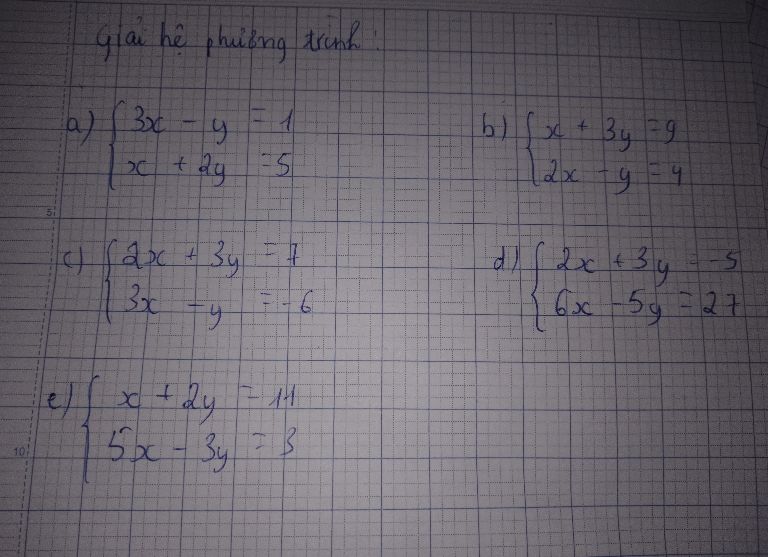 Giải hệ phương trình:
a) { 3x - y = 1
x + 2y = 5
b) { x + 3y = 9
2x - y = 4
5
c) { 2x + 3y = 7
3x - y = -6
d) { 2x + 3y = -5
6x - 5y = 27
e) { x + 2y = 11
5x - 3y = 3
10